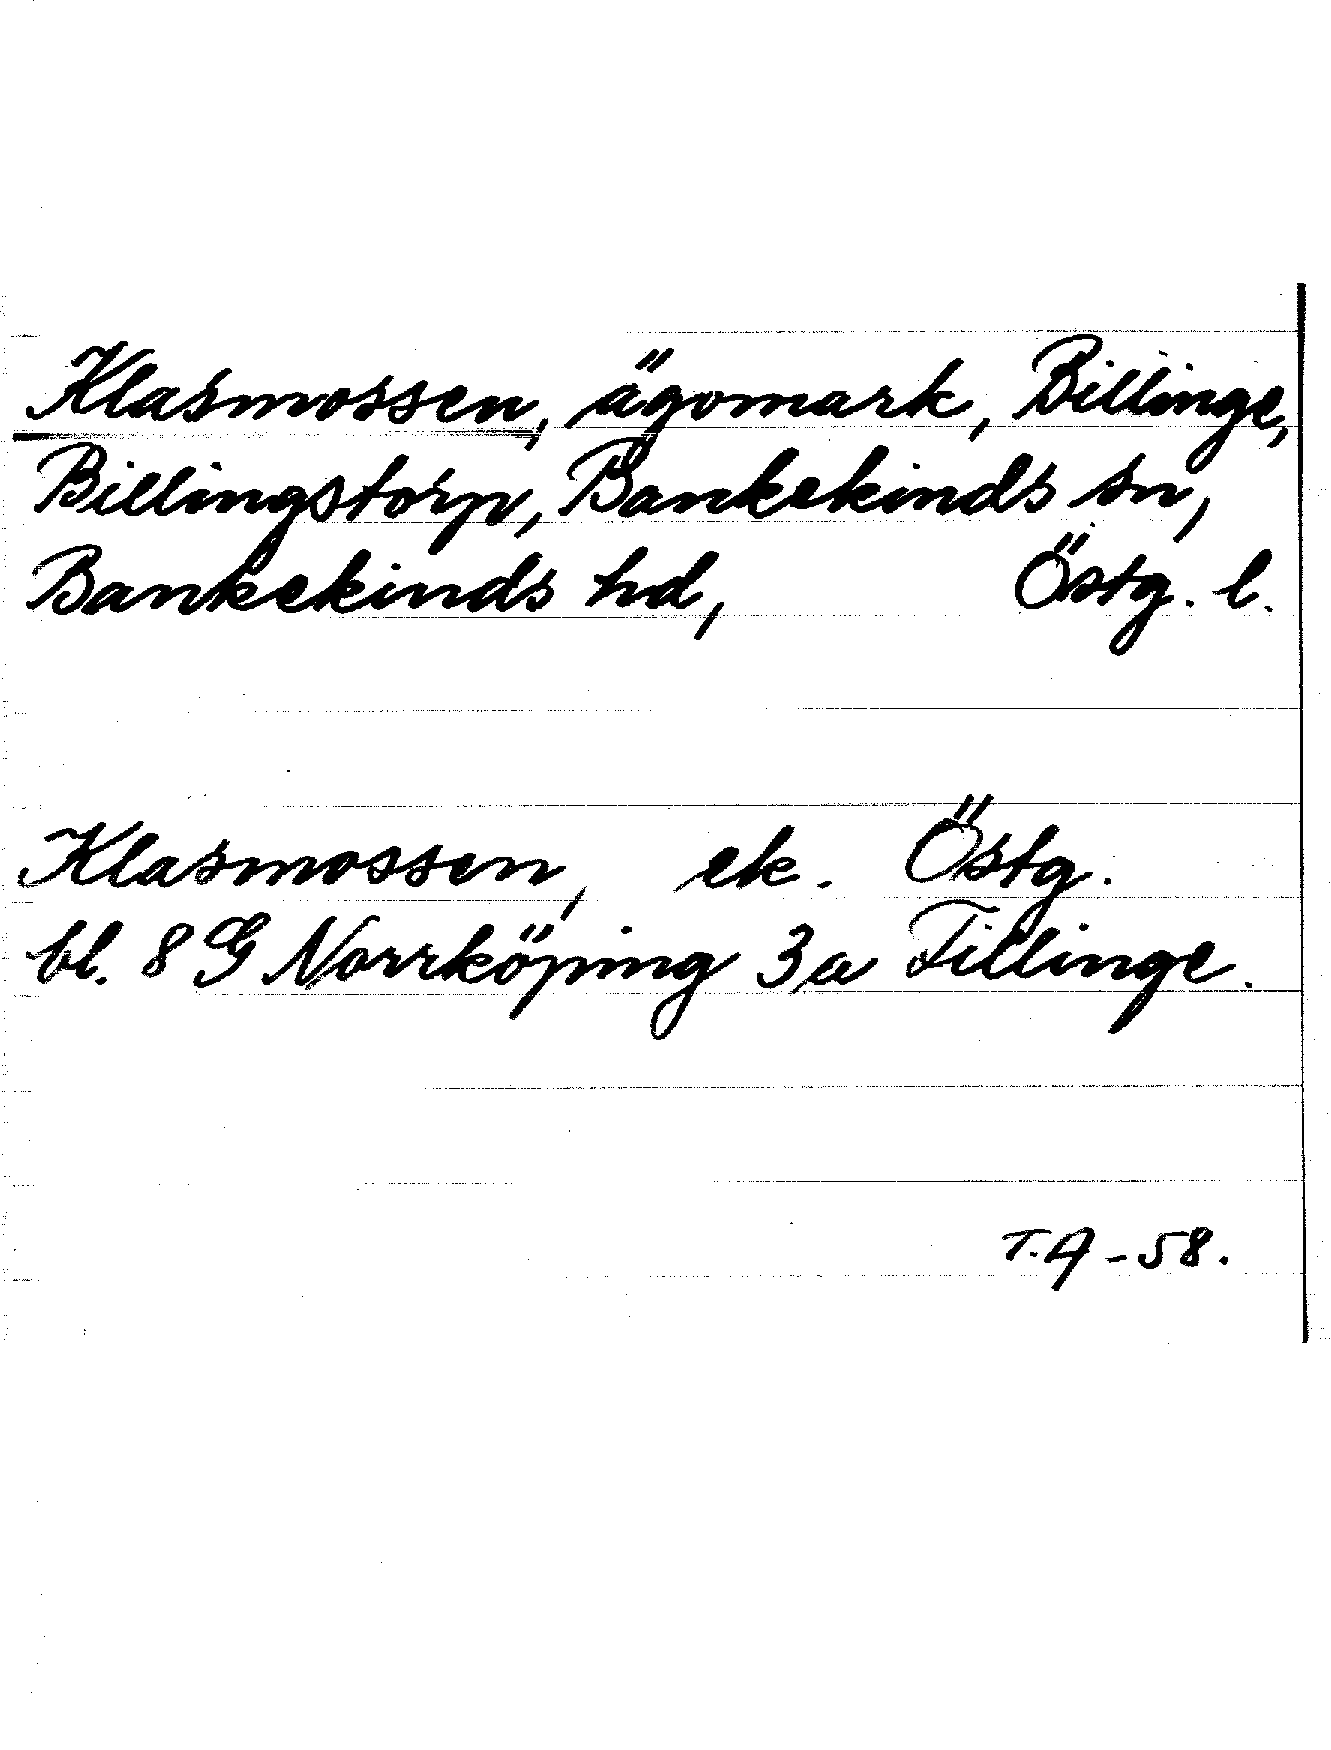 Klasmossen, ägomark, Billinge,
Billingstorp, Bankekinds sn,
Bankekinds hd, Östg. l.
Klasmossen, ek. Östg.
bl. 8 G Norrköping 3a Fillinge.
T.A - 58.